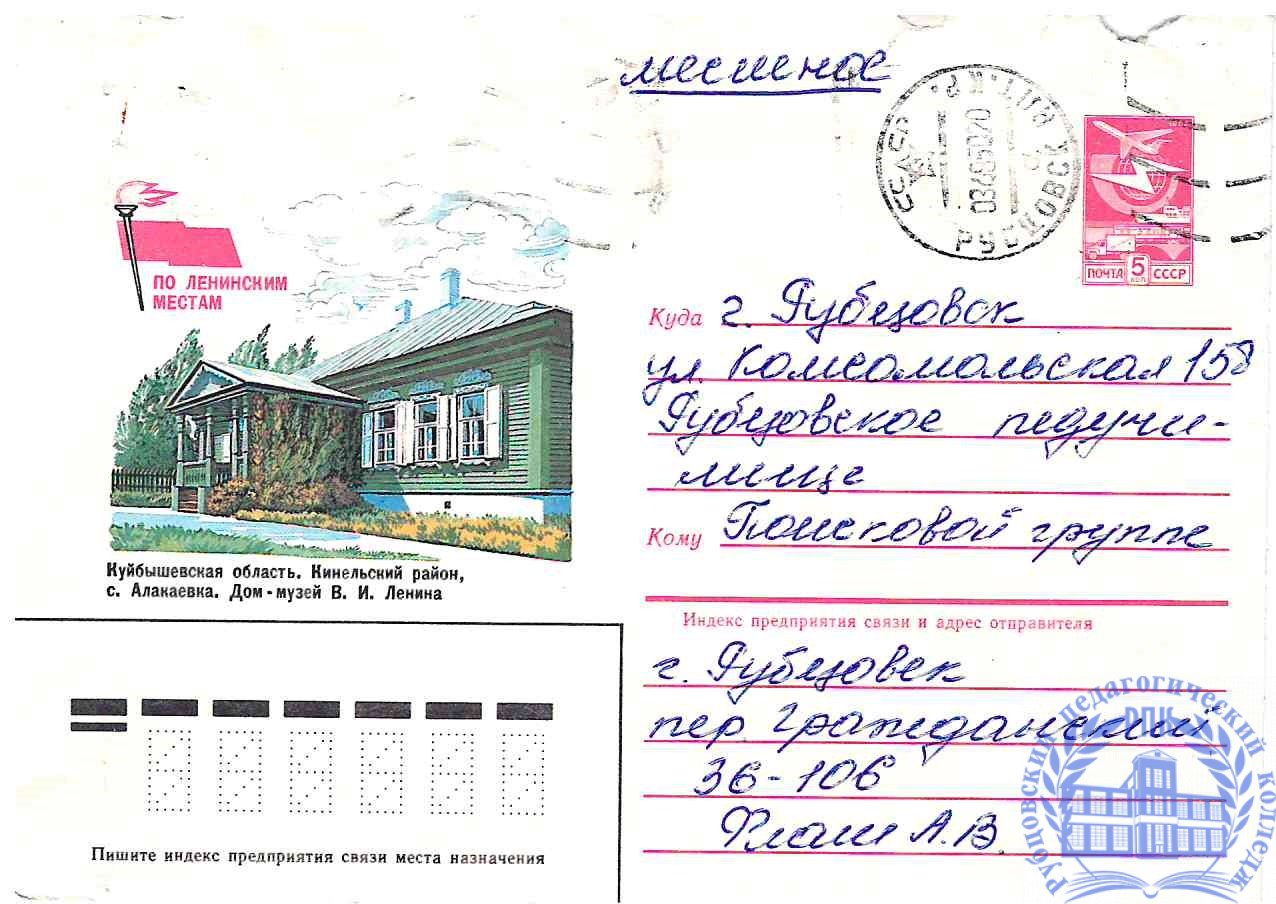 местное
СССР
РУБЦОВСК
АЛТ. КР.
ПОЧТА 5 КОП СССР
ПО ЛЕНИНСКИМ
МЕСТАМ
Куйбышевская область. Кинельский район,
с. Алакаевка. Дом-музей В. И. Ленина
Куда г. Рубцовск
ул. Комсомольская 158
Рубцовское педучи-
лище
Кому Поисковой группе
Индекс предприятия связи и адрес отправителя
г. Рубцовск
пер. Гражданский
36-106
А.В.
Пишите индекс предприятия связи места назначения
Рубцовский педагогический колледж
РПК